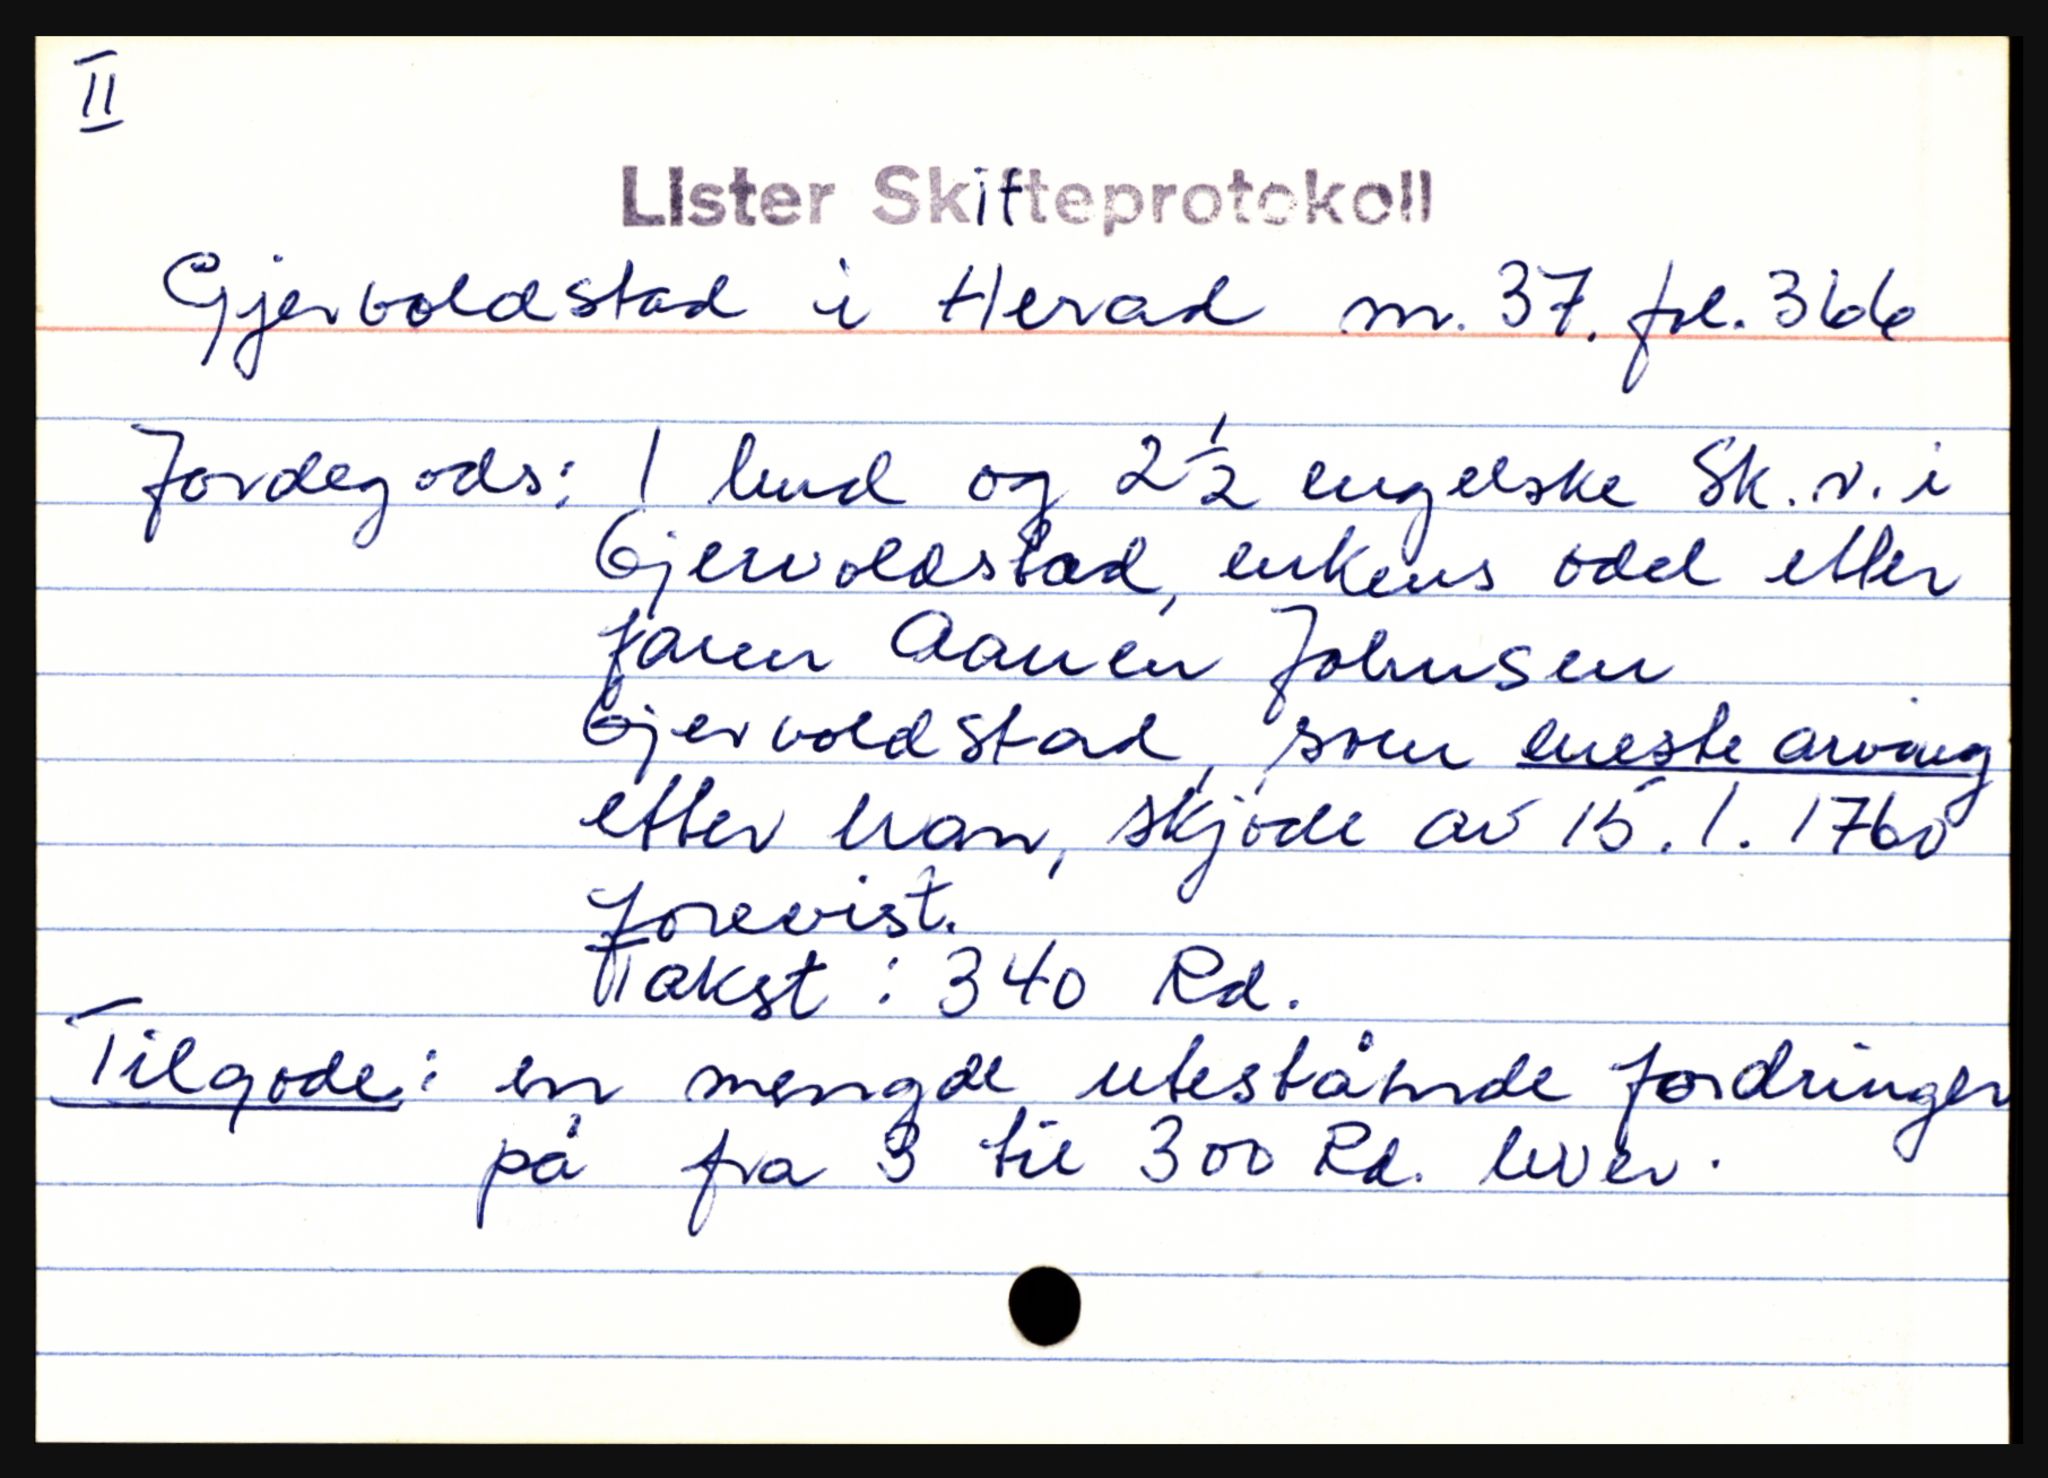 II
Lister Skifteprotokoll
Gjervoldstad i Herad nr. 37. fol. 366
Jordegods: 1 hud og 2½ engelske Sk. v. i
Gjervoldstad, enkens odel etter
faren Aanen Johnsen
Gjervoldstad, som eneste arving
etter han, skjøde av 15.1.1760
forevist.
Takst: 340 Rd.
Tilgode: en mengde utestående fordringer
på fra 3 til 300 Rd. hver.